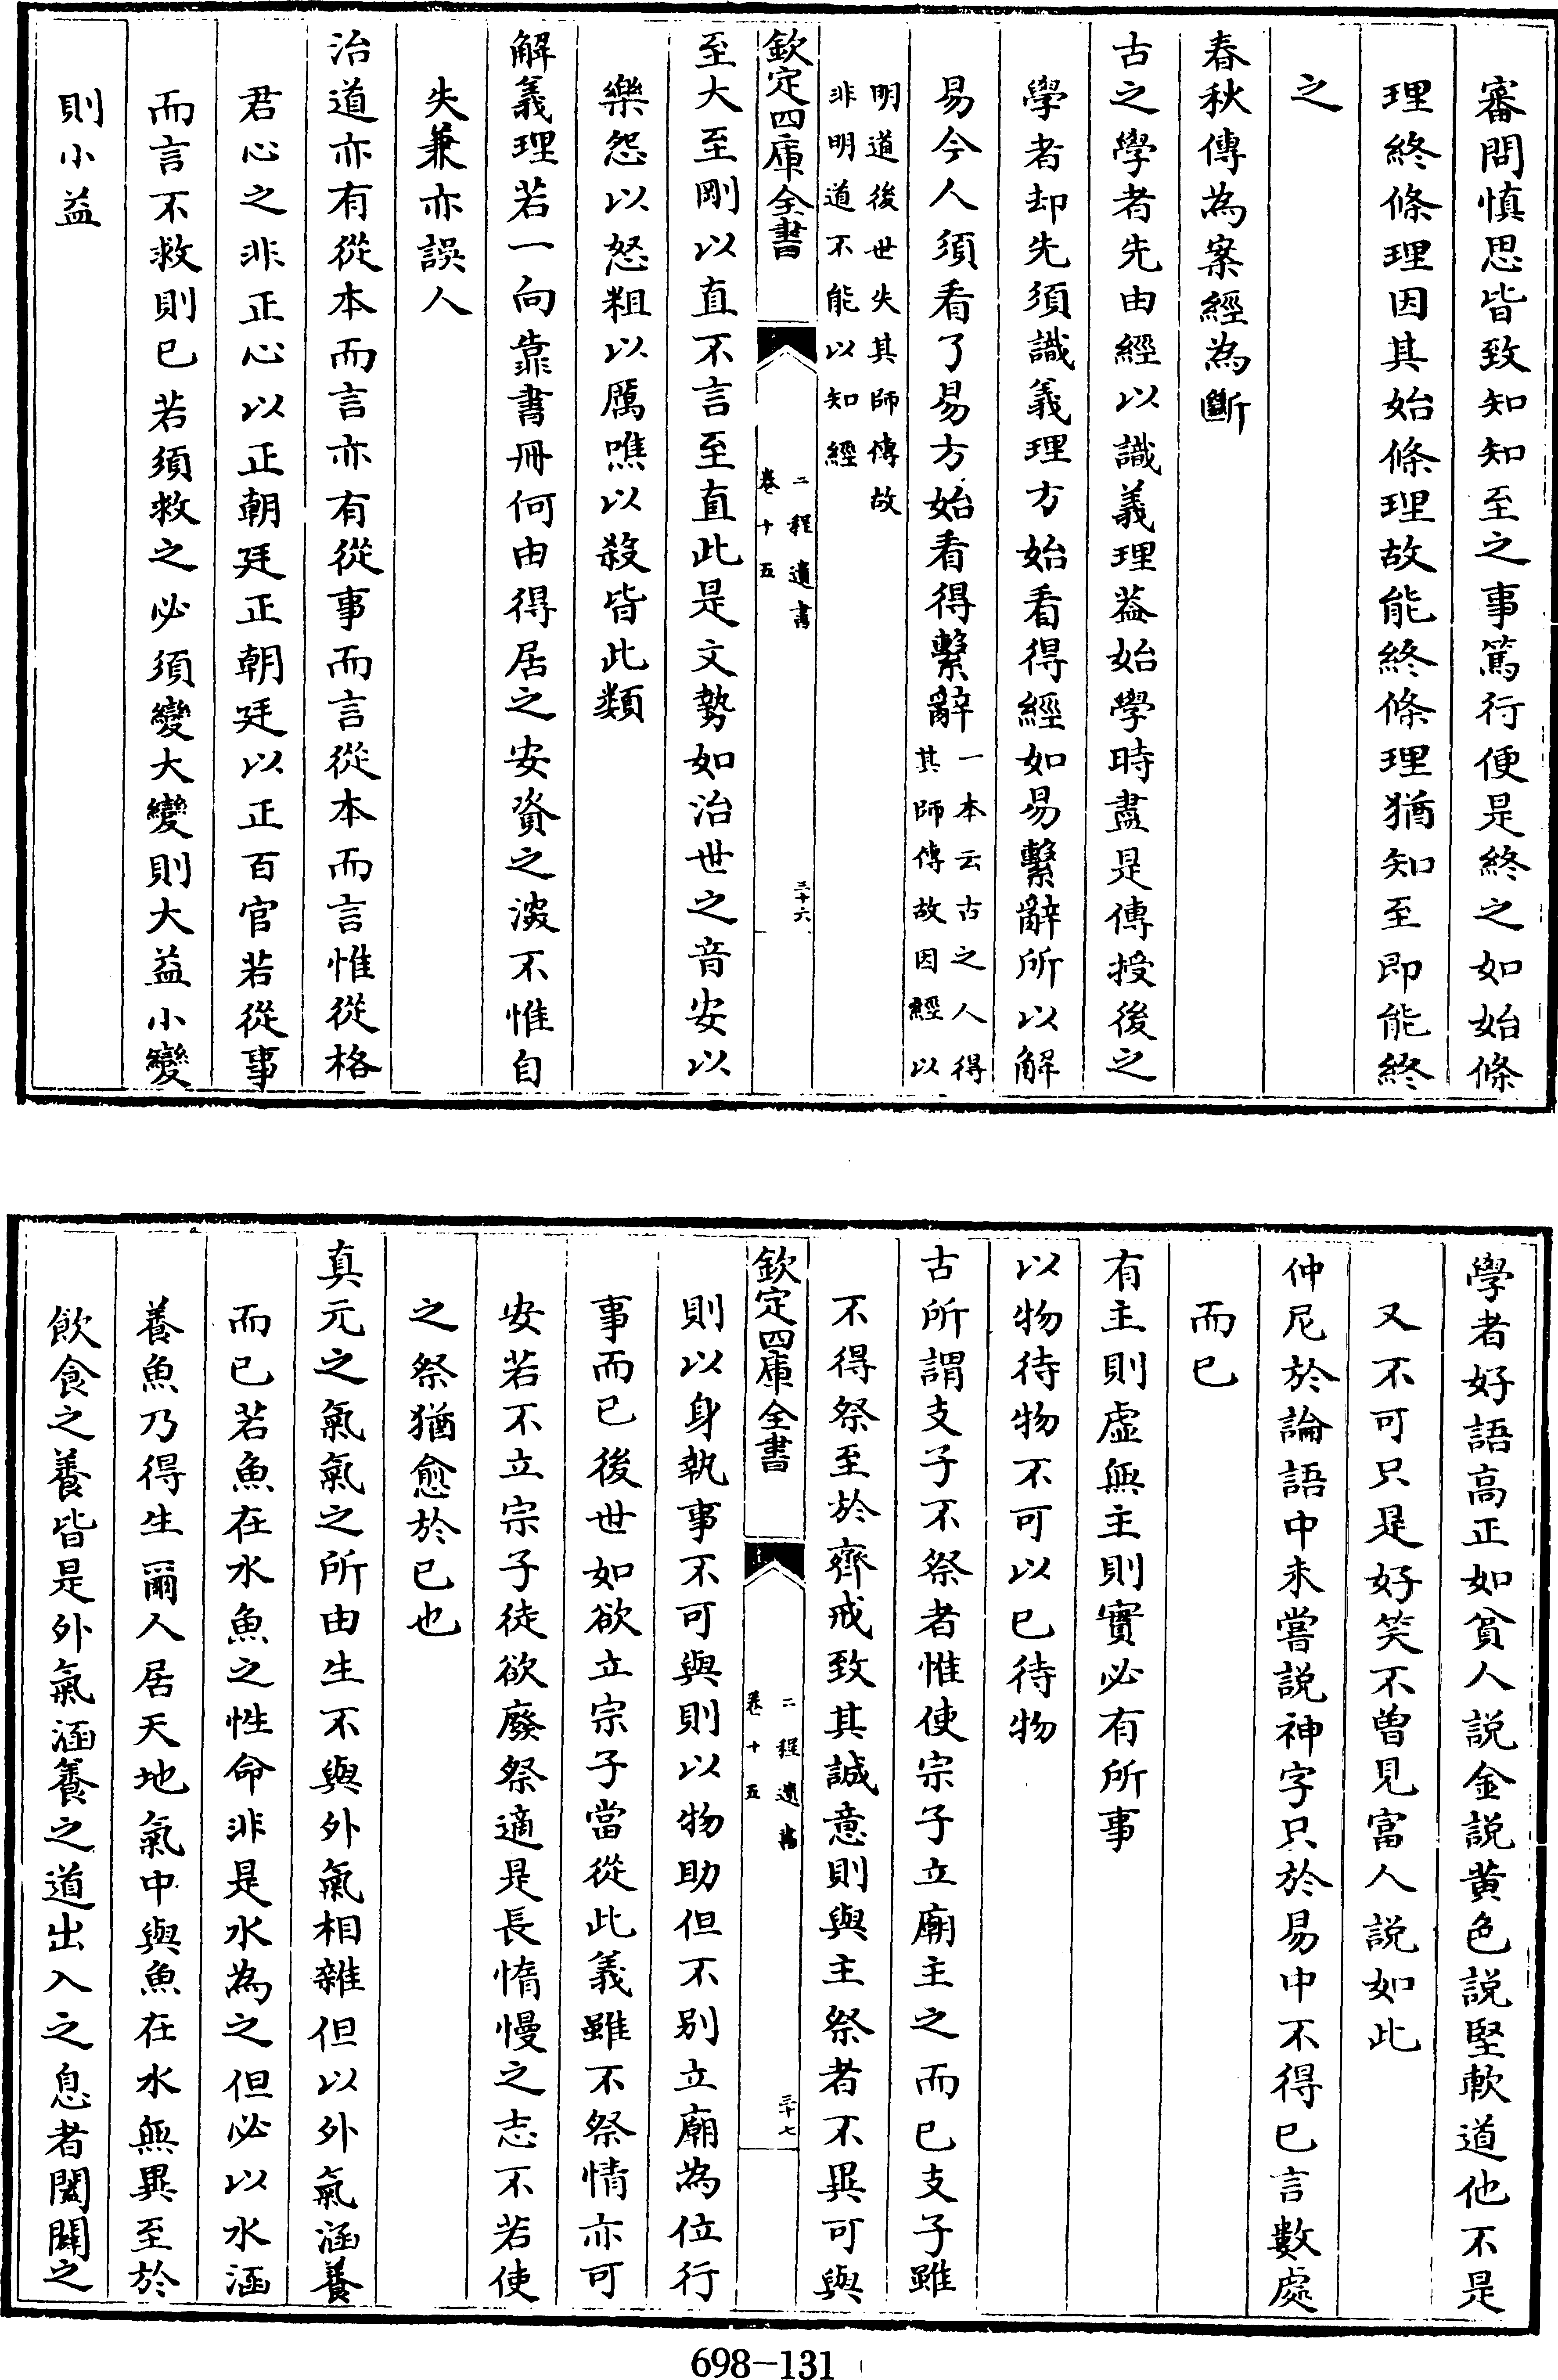 審問慎思皆致知知至之事篤行便是終之如始條
理終條理因其始條理故能終條理猶知至即能終
之
春秋傳為案經為斷
古之學者先由經以識義理葢始學時盡是傳授後之
學者却先須識義理方始看得經如易繫辭所以解
易今人須看了易方始看得繫辭一本云古之人得其師傳故因經以
明道後世失其師傳故
非明道不能以知經
欽定四庫全書
二程遺書
卷十五
三十六
至大至剛以直不言至直此是文勢如治世之音安以
樂怨以怒粗以厲噍以殺皆此類
解義理若一向靠書冊何由得居之安資之深不惟自
失兼亦誤人
治道亦有從本而言亦有從事而言從本而言惟從格
君心之非正心以正朝廷正朝廷以正百官若從事
而言不救則已若須救之必須變大變則大益小變
則小益
學者好語高正如貧人說金說黄色說堅軟道他不是
又不可只是好笑不曾見富人說如此
仲尼於論語中未嘗說神字只於易中不得已言數處
而已
有主則虛無主則實必有所事
以物待物不可以已待物
古所謂支子不祭者惟使宗子立廟主之而已支子雖
不得祭至於齊戒致其誠意則與主祭者不異可與
欽定四庫全書
二程遺書
卷十五
三十七
則以身執事不可與則以物助但不别立廟為位行
事而已後世如欲立宗子當從此義雖不祭情亦可
安若不立宗子徒欲廢祭適是長惰慢之志不若使
之祭猶愈於已也
真元之氣氣之所由生不與外氣相雜但以外氣涵養
而已若魚在水魚之性命非是水為之但必以水涵
養魚乃得生爾人居天地氣中與魚在水無異至於
飲食之養皆是外氣涵養之道出入之息者闔闢之
698-131